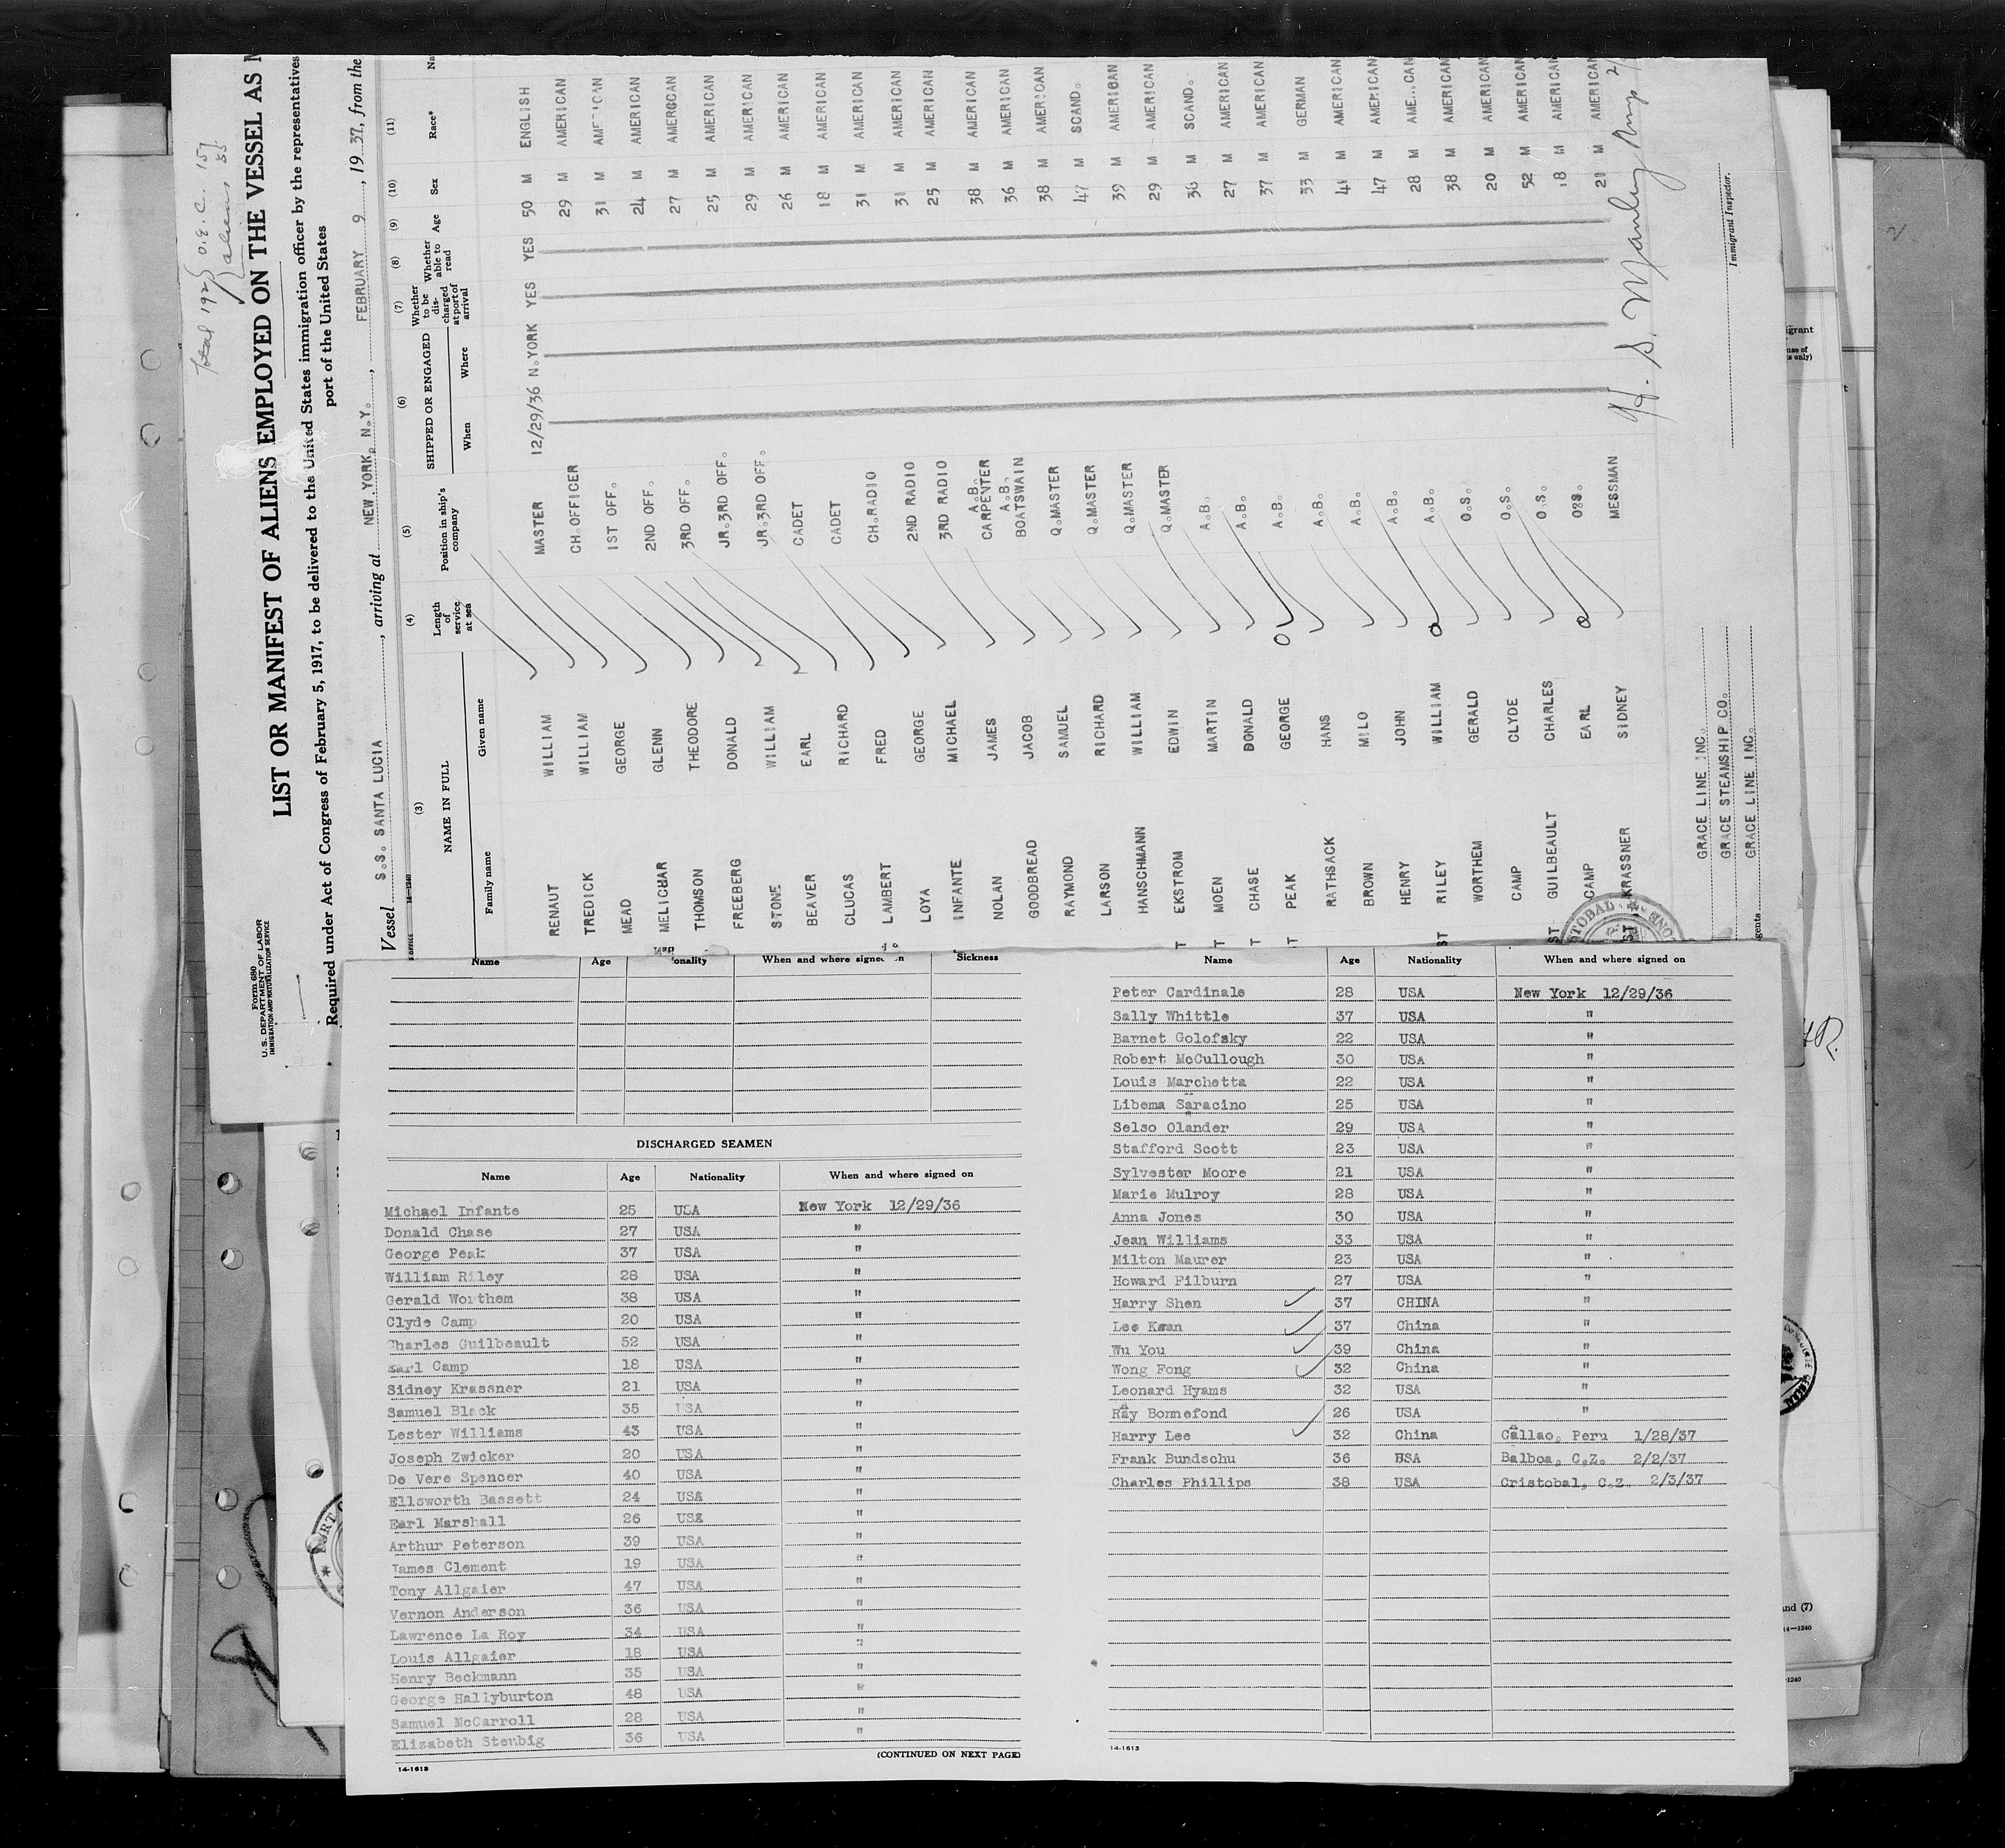 Total 192 { O.E.C. 157
{ aliens 35
Form 680
U.S. DEPARTMENT OF LABOR
IMMIGRATION AND NATURALIZATION SERVICE
LIST OR MANIFEST OF ALIENS EMPLOYED ON THE VESSEL AS
Required under Act of Congress of February 5, 1917, to be delivered to the United States immigration officer by the representatives
port of the United States
Vessel S.S. SANTA LUCIA, arriving at NEW YORK, N.Y., FEBRUARY 9, 1937, from the
(3) (4) (5) (6) (7) (8) (9) (10) (11)
NAME IN FULL Length of service at sea Position in ship's company SHIPPED OR ENGAGED Whether to be discharged at port of arrival Whether able to read Age Sex Race*
Family name Given name When Where
RENAUT WILLIAM MASTER 12/29/36 N.YORK YES YES 50 M ENGLISH
TREDICK WILLIAM CH.OFFICER 29 M AMERICAN
MEAD GEORGE 1ST OFF. 31 M AMERICAN
MELICHAR GLENN 2ND OFF. 24 M AMERICAN
THOMSON THEODORE 3RD OFF. 27 M AMERGCAN
FREEBERG DONALD JR.3RD OFF. 25 M AMERICAN
STONE WILLIAM JR.3RD OFF. 29 M AMERICAN
BEAVER EARL CADET 26 M AMERICAN
CLUCAS RICHARD CADET 18 M AMERICAN
LAMBERT FRED CH.RADIO 31 M AMERICAN
LOYA GEORGE 2ND RADIO 31 M AMERICAN
INFANTE MICHAEL 3RD RADIO 25 M AMERICAN
NOLAN JAMES A.B. CARPENTER 38 M AMERICAN
GOODBREAD JACOB A.B. BOATSWAIN 36 M AMERICAN
RAYMOND SAMUEL Q.MASTER 38 M AMERICAN
LARSON RICHARD Q.MASTER 47 M SCAND.
HANSCHMANN WILLIAM Q.MASTER 39 M AMERICAN
EKSTROM EDWIN Q.MASTER 29 M AMERICAN
MOEN MARTIN A.B. 36 M SCAND.
CHASE DONALD A.B. 27 M AMERICAN
PEAK GEORGE A.B. 37 M AMERICAN
RATHSACK HANS A.B. 33 M GERMAN
BROWN MILO A.B. 41 M AMERICAN
HENRY JOHN A.B. 47 M AMERICAN
RILEY WILLIAM A.B. 28 M AMERICAN
WORTHEM GERALD O.S. 38 M AMERICAN
CAMP CLYDE O.S. 20 M AMERICAN
GUILBEAULT CHARLES O.S. 52 M AMERICAN
CAMP EARL O.S. 18 M AMERICAN
KRASSNER SIDNEY MESSMAN 21 M AMERICAN
H. S. Manley
GRACE LINE INC.
GRACE STEAMSHIP CO.
GRACE LINE INC.
Immigrant Inspector.
Name Age When and where signed on Sickness
DISCHARGED SEAMEN
Name Age Nationality When and where signed on
Michael Infante 25 USA New York 12/29/36
Donald Chase 27 USA "
George Peak 37 USA "
William Riley 28 USA "
Gerald Worthem 38 USA "
Clyde Camp 20 USA "
Charles Guilbeault 52 USA "
Earl Camp 18 USA "
Sidney Krassner 21 USA "
Samuel Black 35 USA "
Lester Williams 43 USA "
Joseph Zwicker 20 USA "
De Vere Spencer 40 USA "
Ellsworth Bassett 24 USA "
Earl Marshall 26 USA "
Arthur Peterson 39 USA "
James Clement 19 USA "
Tony Allgaier 47 USA "
Vernon Anderson 36 USA "
Lawrence La Roy 34 USA "
Louis Allgaier 18 USA "
Henry Beckmann 35 USA "
George Hallyburton 48 USA "
Samuel McCarroll 28 USA "
Elizabeth Steubig 36 USA "
(CONTINUED ON NEXT PAGE)
14-1613
Name Age Nationality When and where signed on
Peter Cardinale 28 USA New York 12/29/36
Sally Whittle 37 USA "
Barnet Golofsky 22 USA "
Robert McCullough 30 USA "
Louis Marchetta 22 USA "
Libema Saracino 25 USA "
Selso Olander 29 USA "
Stafford Scott 23 USA "
Sylvester Moore 21 USA "
Marie Mulroy 28 USA "
Anna Jones 30 USA "
Jean Williams 33 USA "
Milton Maurer 23 USA "
Howard Filburn 27 USA "
Harry Shen 37 CHINA "
Lee Kwan 37 China "
Wu You 39 China "
Wong Fong 32 China "
Leonard Hyams 32 USA "
Ray Bonnefond 26 USA "
Harry Lee 32 China Callao, Peru 1/28/37
Frank Bundschu 36 USA Balboa, C.Z. 2/2/37
Charles Phillips 38 USA Cristobal, C.Z. 2/3/37
14-1613
and (7)
14-1240